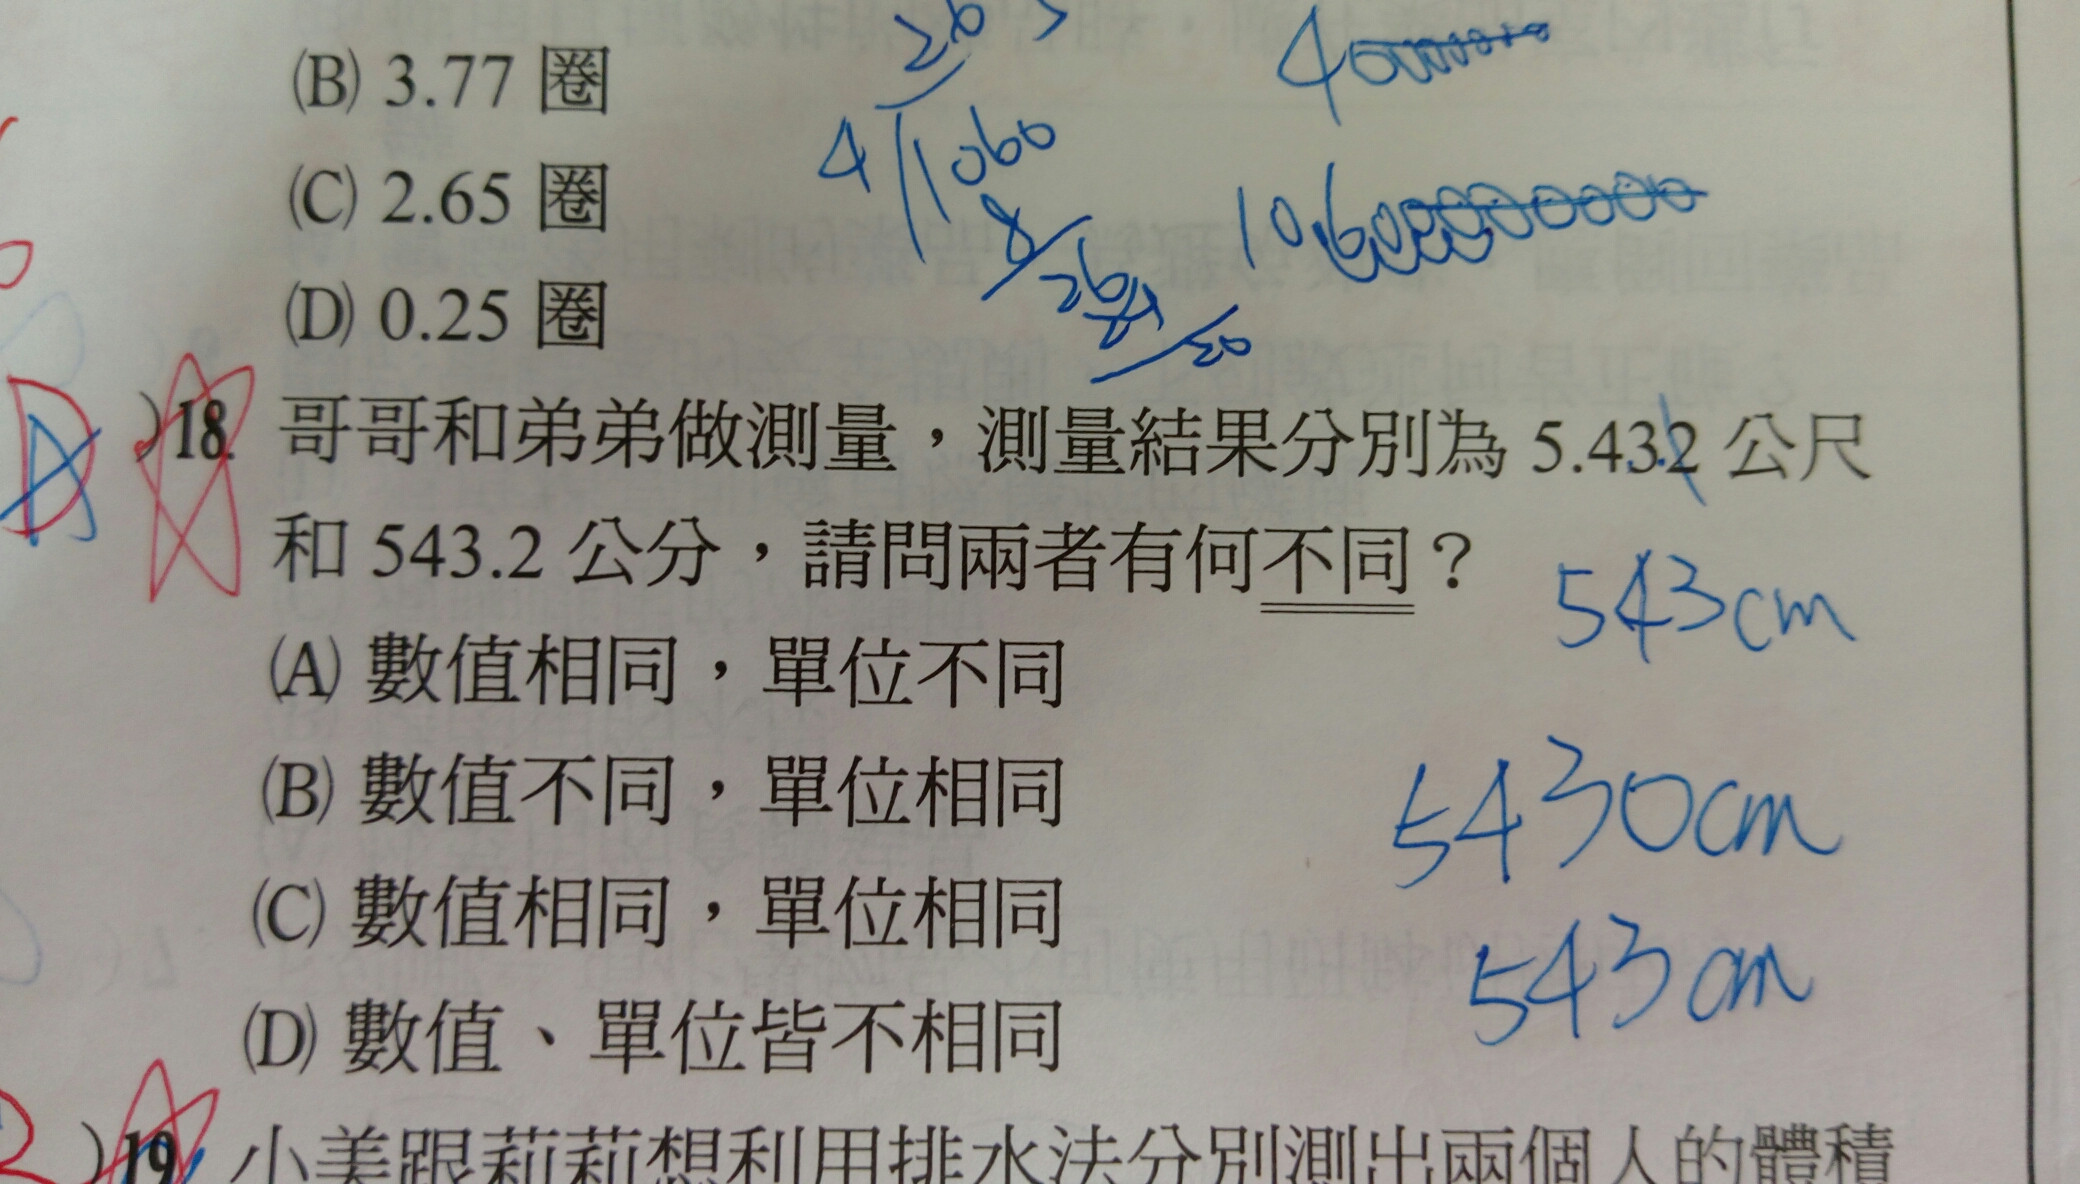 (B) 3.77 圈
(C) 2.65 圈
(D) 0.25 圈
4 1060
8
26
20
4
)18. 哥哥和弟弟做測量，測量結果分別為 5.432 公尺
和 543.2 公分，請問兩者有何不同？
543cm
(A) 數值相同，單位不同
(B) 數值不同，單位相同
5430cm
(C) 數值相同，單位相同
543cm
(D) 數值、單位皆不相同
)19. 小美跟莉莉想利用排水法分別測出兩個人的體積